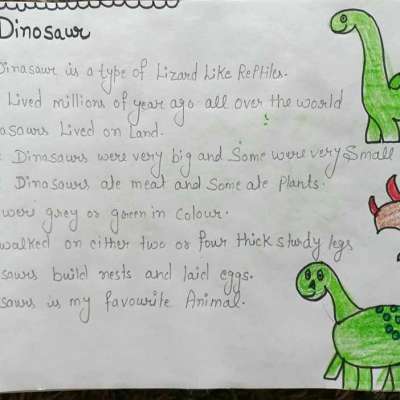 Dinosaur
Dinosaur is a type of Lizard Like Reptiles.
Lived millions of year ago all over the world
asaurs Lived on Land.
Dinosaurs were very big and Some were very Small
Dinosaurs ate meat and Some ate Plants.
were grey or green in Colour.
walked on either two or four thick sturdy legs
saurs build nests and laid eggs.
saurs is my favourite Animal.